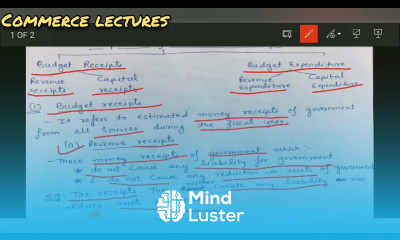 COMMERCE LECTURES
1 OF 2
Budget Receipts Budget Expenditure
Revenue receipts Capital receipts Revenue Expenditure Capital Expenditure
(1) Budget receipts
- It refers to estimated money receipts of government
from all sources during the fiscal year.
(a) Revenue receipts
- Those money receipts of government which :-
* do not cause any liability for government
* do not cause any reduction in assets of government
eg. Tax receipts. neither create any liability nor
reduce
Mind
Luster